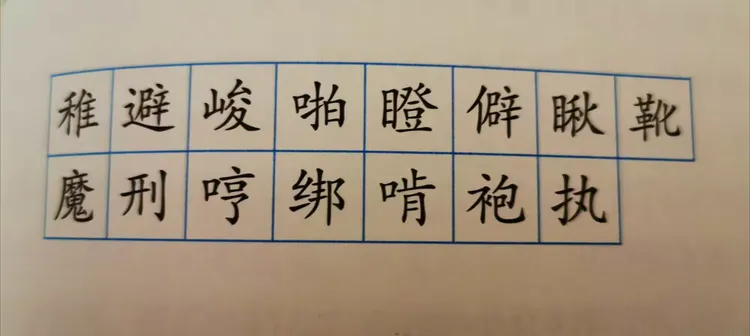 稚避峻啪瞪僻瞅靴
魔刑哼绑啃袍执